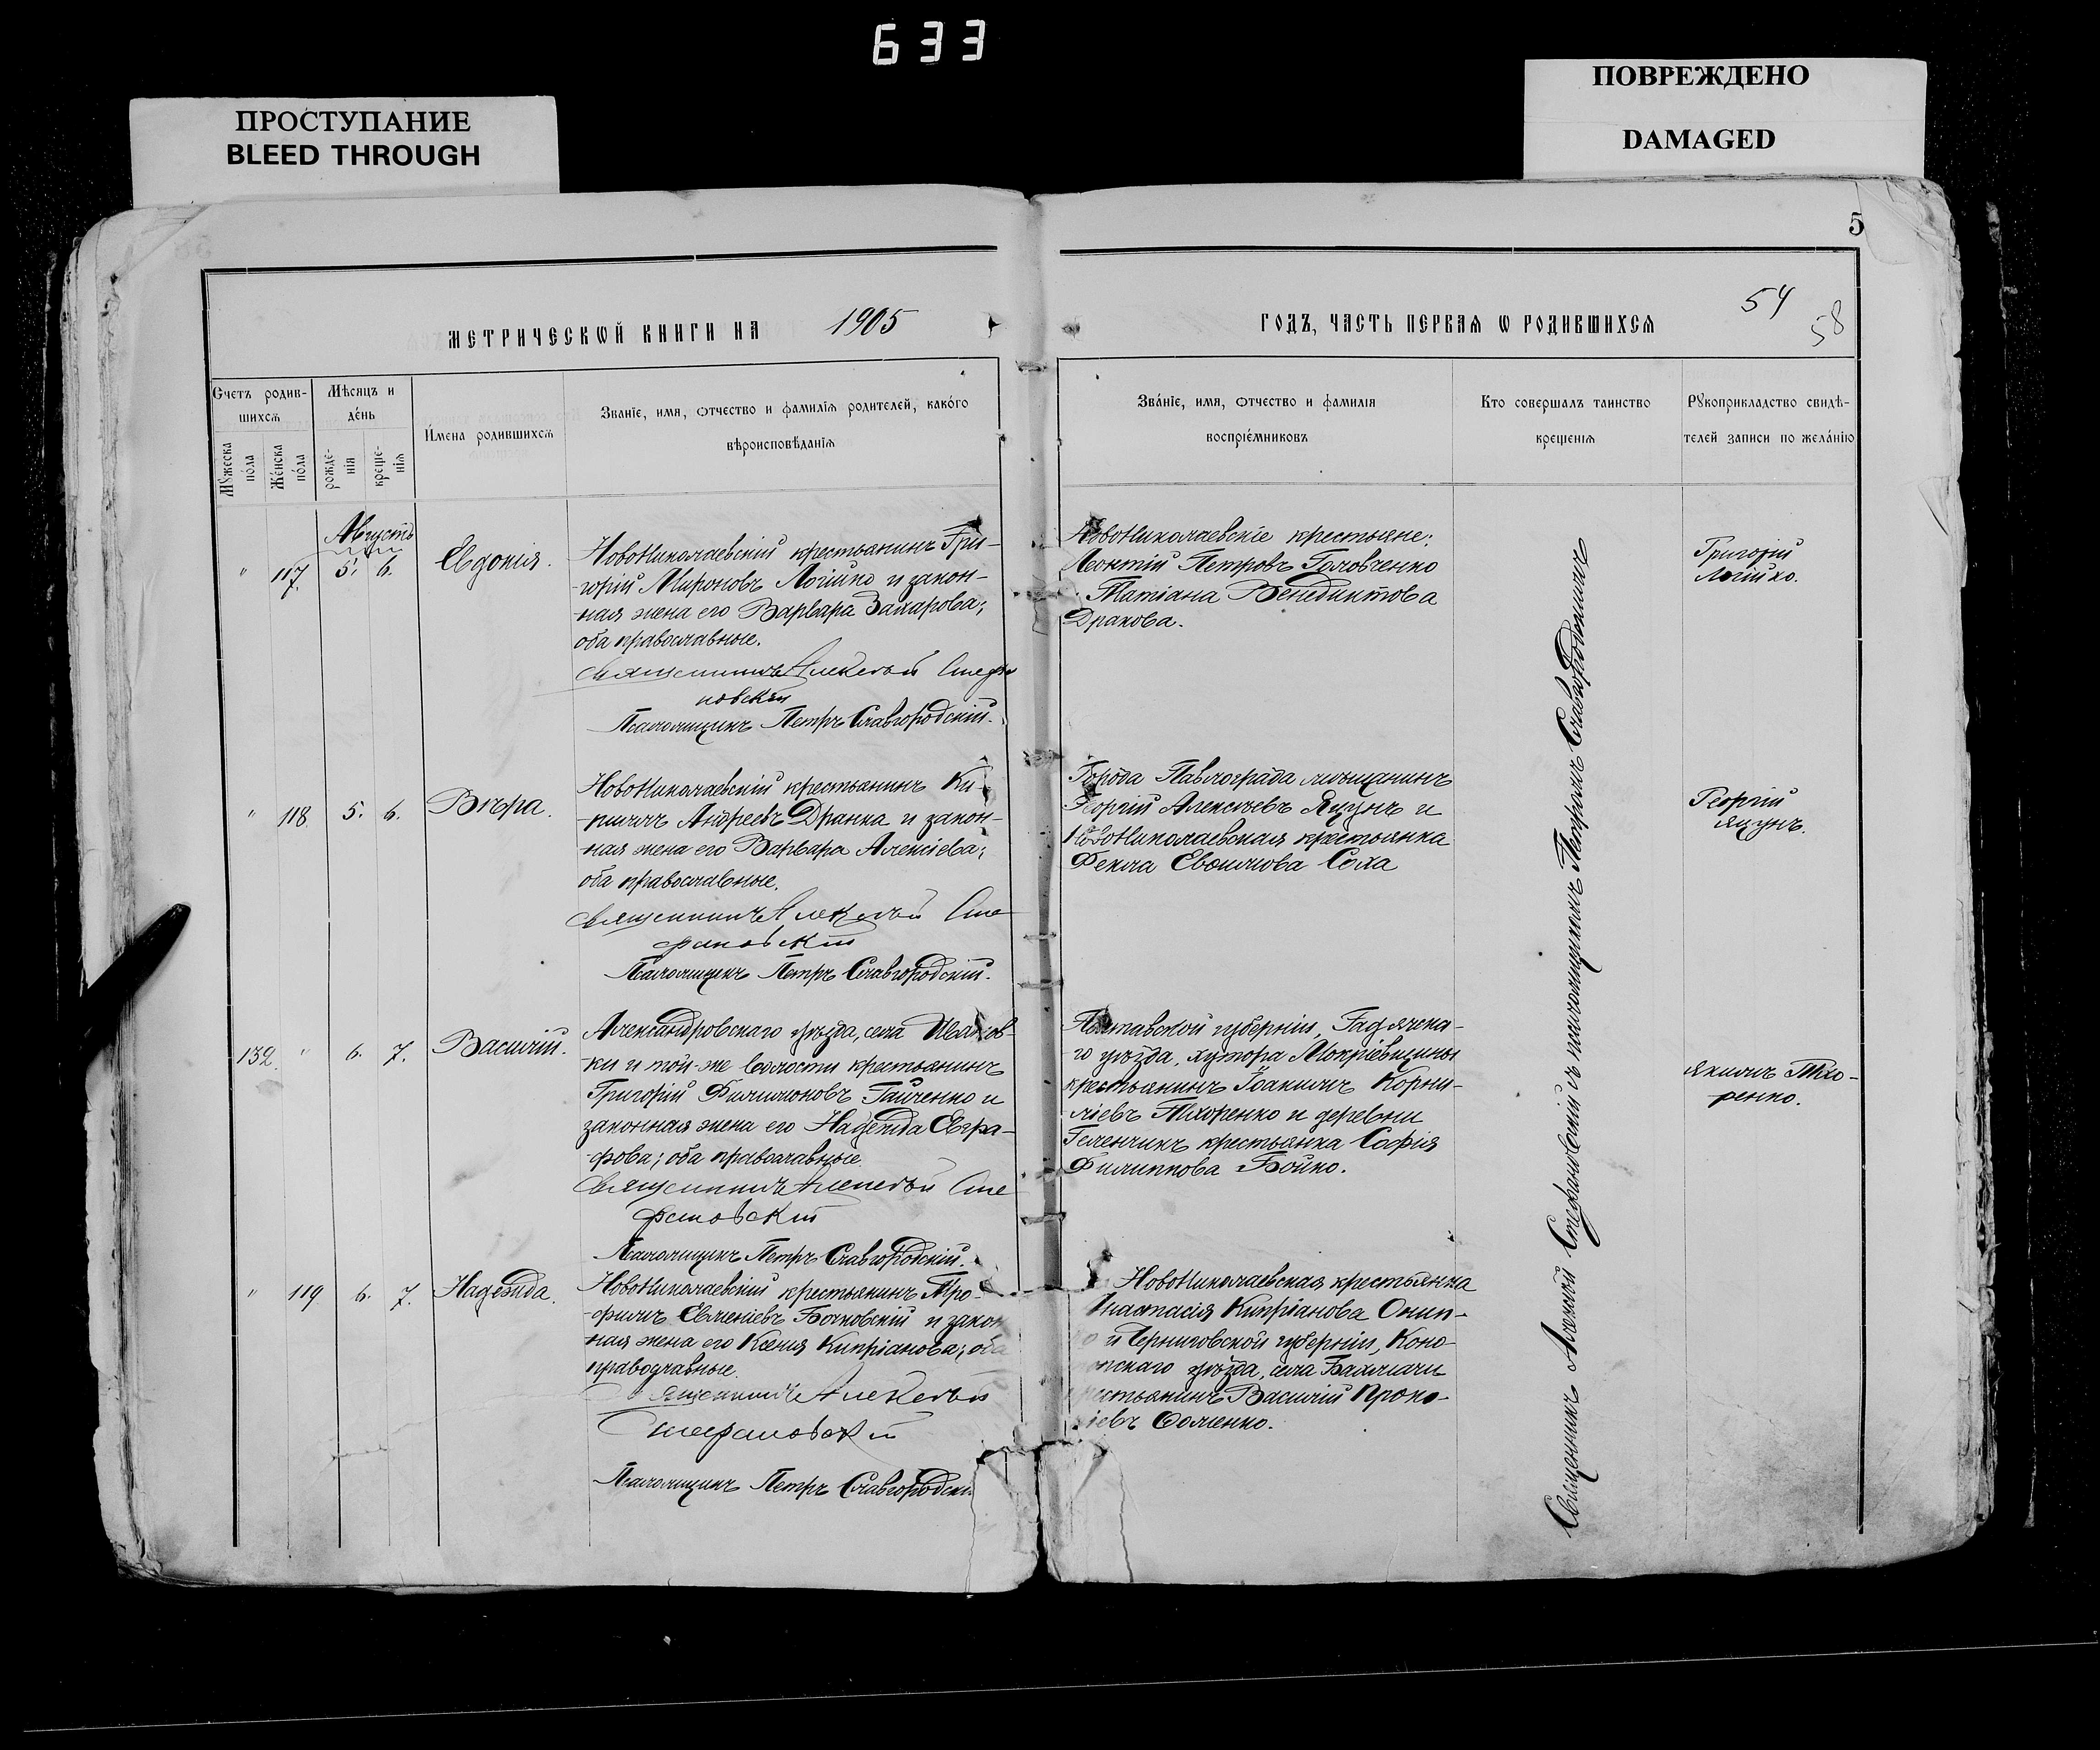 633
ПРОСТУПАНИЕ
BLEED THROUGH
ПОВРЕЖДЕНО
DAMAGED
5
54
58
МЕТРИЧЕСКѠЙ КНИГИ НА 1905
ГОДЪ, ЧАСТЬ ПЕРВАѦ Ѡ РОДИВШИХСѦ
Счетъ родив-
шихсѧ
Мꙋжеска
по́ла
Же́нска
по́ла
Мѣсяцъ и
де́нь
рожде-
нія
креще-
нія
И́мена родившихсѧ
Званіе, имя, ѻтчество и фамилія родителей, како́го
вѣроисповѣданія
Зва́ніе, имя, ѻтчество и фамилія
воспріе́мниковъ
Кто совершалъ таинство
крещенія
Рꙋкоприкладство свидѣ-
телей записи по жела́нію
Августъ
" 117. 5. 6. Евдокія.
Новониколаевскій крестьянинъ Гри-
-горій Мироновъ Логійко и закон-
-ная жена его Варвара Захарова;
оба православные.
Священникъ Алексѣй Стефа
новскій
Псаломщикъ Петръ Славгородскій.
Новониколаевскіе крестьяне:
Леонтій Петровъ Головченко
Татіана Венедиктова
Дракова.
Григорій
Логійко.
" 118. 5. 6. Вѣра.
Новониколаевскій крестьянинъ Ки-
-риллъ Андреевъ Дранка и закон-
-ная жена его Варвара Алексіева;
оба православные.
Священникъ Алексѣй Сте
фановскій
Псаломщикъ Петръ Славгородскій.
Города Павлограда мѣщанинъ
Георгій Алексѣевъ Яцунъ и
Новониколаевская крестьянка
Фекла Евфимова Соха
Георгій
Яцунъ.
132. " 6. 7. Василій.
Александровскаго уѣзда, села Иванов-
-ки и той-же волости крестьянинъ
Григорій Филимоновъ Гайченко и
законная жена его Надежда Евгра-
-фова; оба православные.
Священникъ Алексѣй Сте
фановскій
Псаломщикъ Петръ Славгородскій.
Полтавской губерніи, Гадячска-
-го уѣзда, хутора Мокріевщины
крестьянинъ Іоакимъ Корни-
-ліевъ Тхоренко и деревни
Геленчикъ крестьянка Софія
Филиппова Бойко.
Якимъ Тхо-
ренко.
" 119 6. 7. Надежда.
Новониколаевскій крестьянинъ Тро-
-фимъ Евменіевъ Бочковскій и закон
ная жена его Ксенія Кипріанова; оба
православные.
Священникъ Алексѣй
Стефановскій
Псаломщикъ Петръ Славгородскій
Новониколаевская крестьянка
Анастасія Кипріанова Онип-
и Черниговской губерніи, Коно-
топскаго уѣзда, села Бахмачъ
крестьянинъ Василій Проко-
піевъ Фоменко.
Священникъ Алексѣй Стефановскій съ псаломщикомъ Петромъ Славгородскимъ